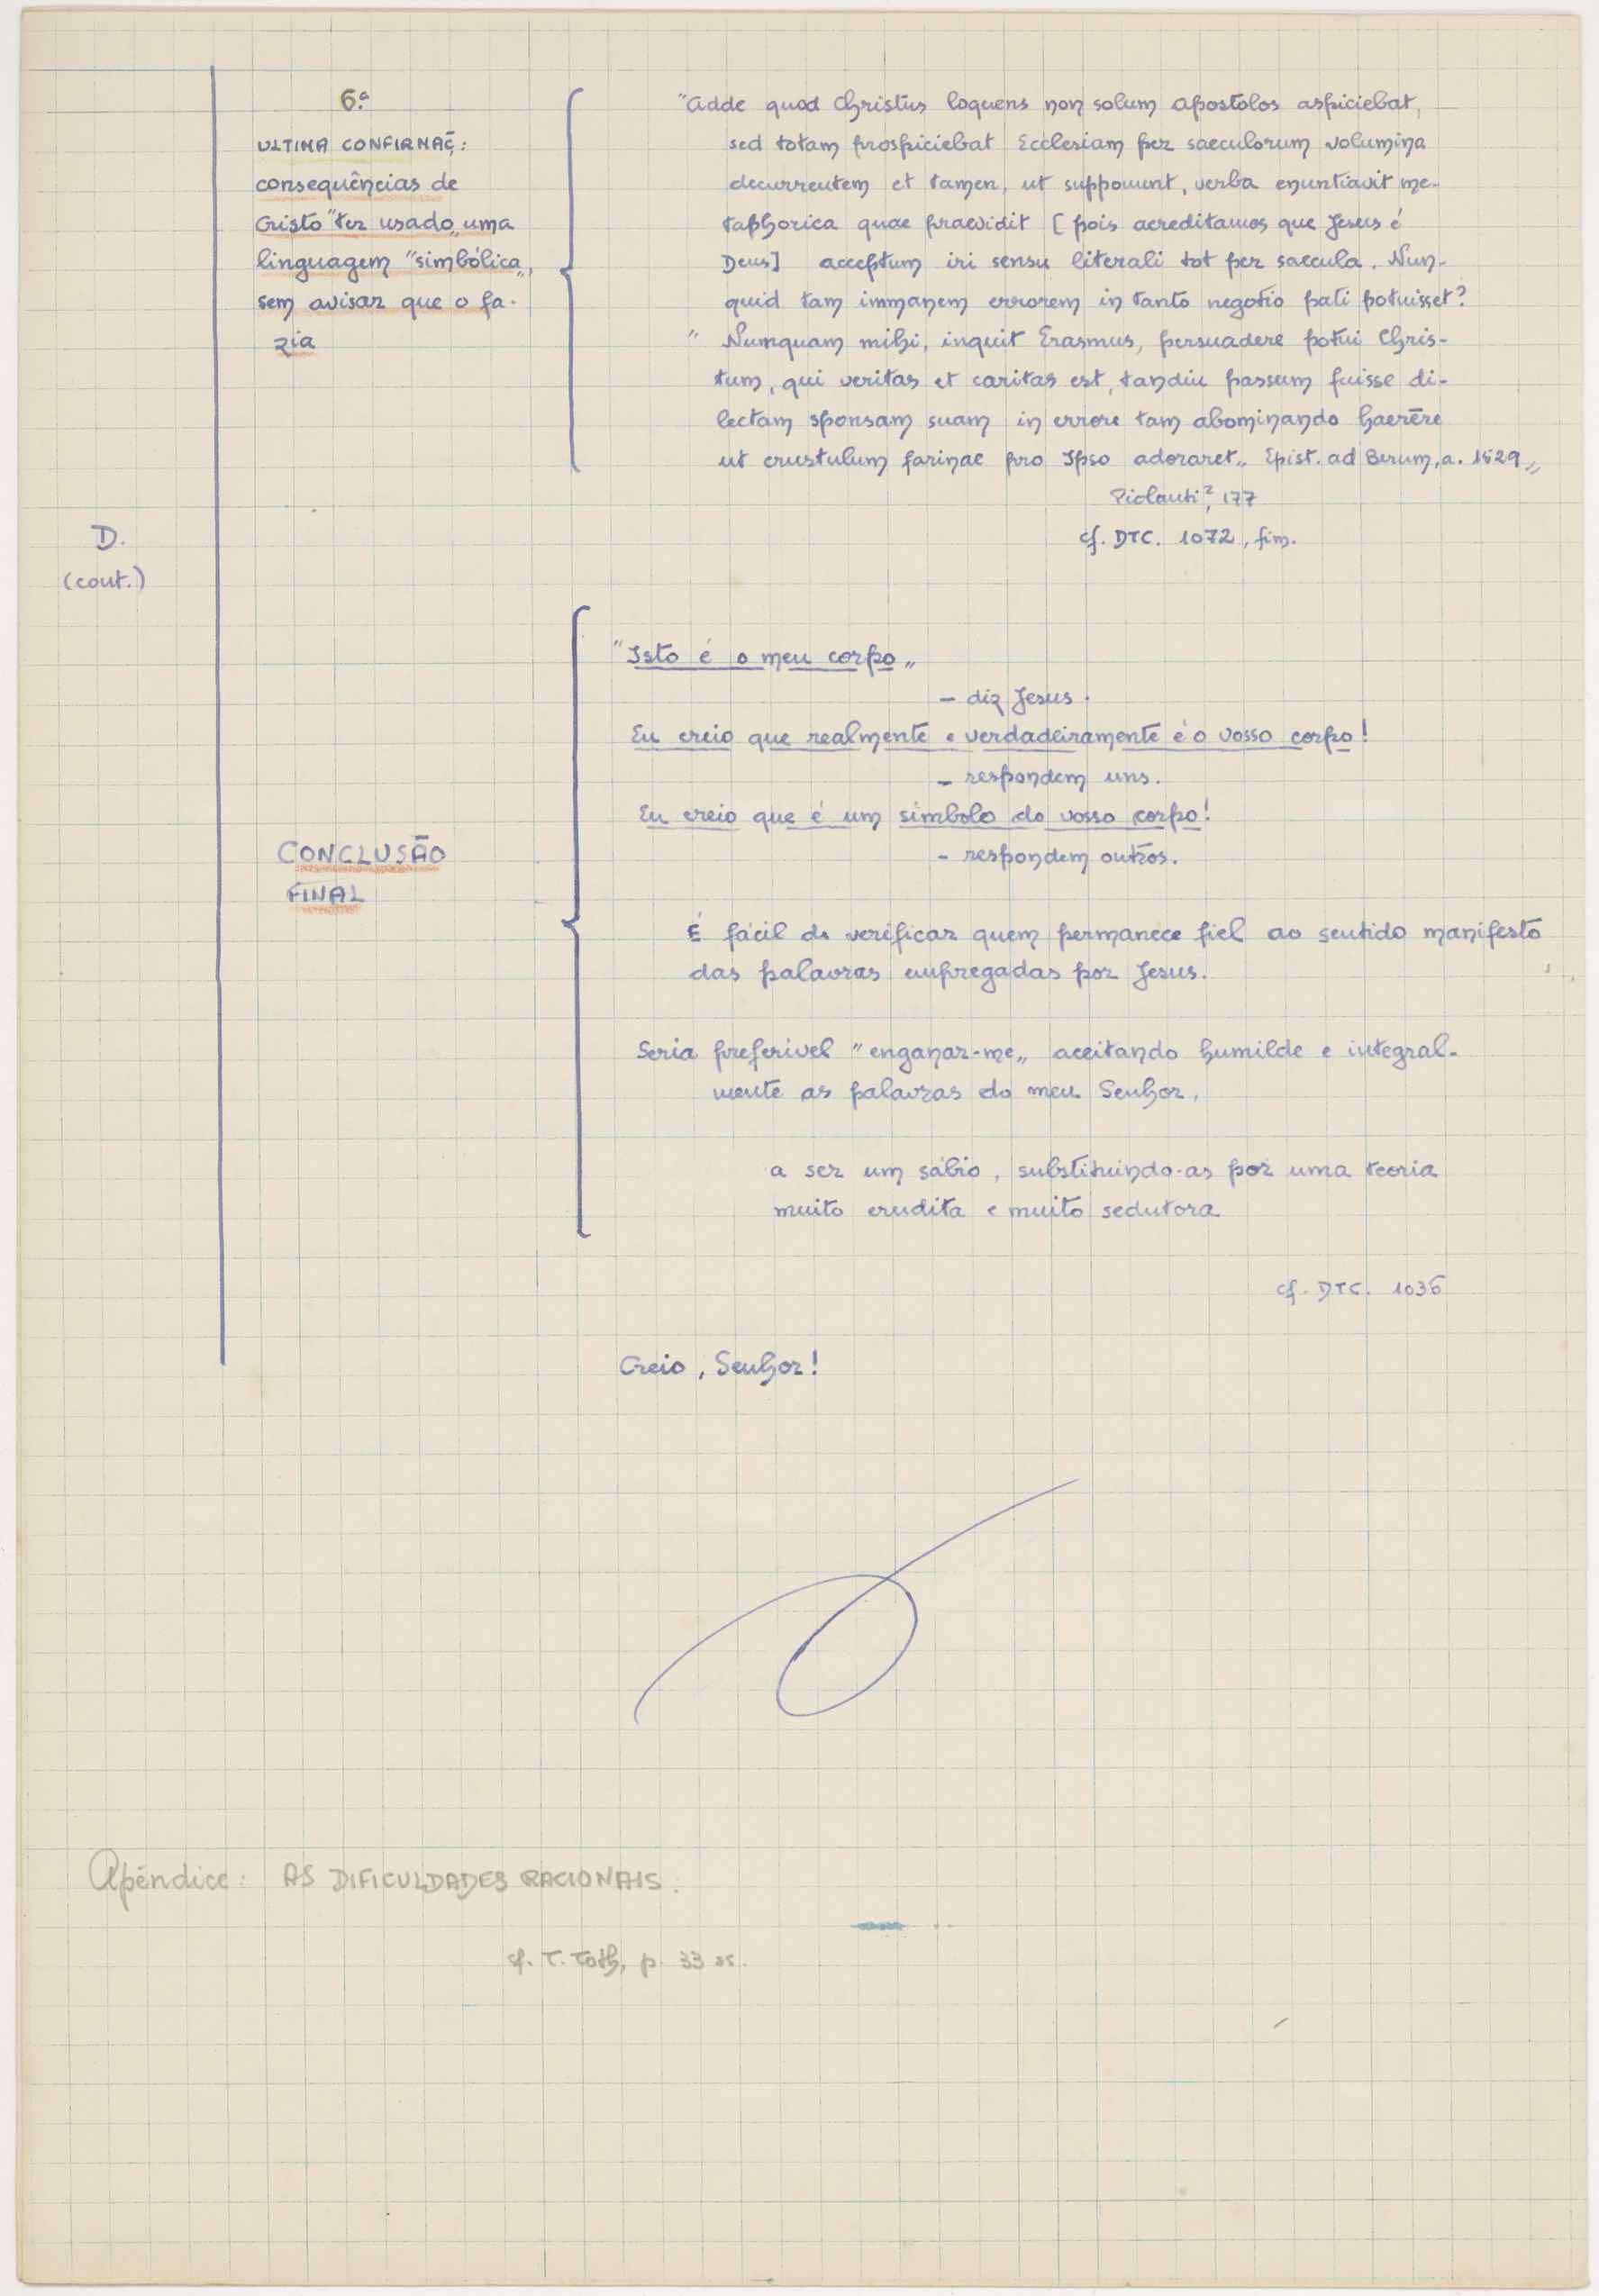 D.
(cont.)
6.ª
ULTIMA CONFIRMAÇ̃:
consequências de
Cristo "ter usado„ uma
linguagem "simbólica„,
sem avisar que o fa-
zia
"Adde quod Christus loquens non solum apostolos aspiciebat,
sed totam prospiciebat Ecclesiam per saeculorum volumina
decurrentem et tamen, ut supponunt, verba enuntiavit me-
taphorica quae praevidit [pois acreditamos que Jesus é
Deus] acceptum iri sensu literali tot per saecula. Nun-
quid tam immanem errorem in tanto negotio pati potuisset?
" Numquam mihi, inquit Erasmus, persuadere potui Chris-
tum, qui veritas et caritas est, tandiu passum fuisse di-
lectam sponsam suam in errore tam abominando haerēre
ut crustulum farinae pro Ipso adoraret„ Epist. ad Berum, a. 1529„
Piolanti², 177
cf. DTC. 1072, fim.
CONCLUSÃO
FINAL
"Isto é o meu corpo„
- diz Jesus.
Eu creio que realmente e verdadeiramente é o vosso corpo!
- respondem uns.
Eu creio que é um símbolo do vosso corpo!
- respondem outros.
É fácil de verificar quem permanece fiel ao sentido manifesto
das palavras empregadas por Jesus.
Seria preferível "enganar-me„ aceitando humilde e integral-
mente as palavras do meu Senhor,
a ser um sábio, substituindo-as por uma teoria
muito erudita e muito sedutora
cf. DTC. 1036
Creio, Senhor!
Apêndice: AS DIFICULDADES RACIONAIS.
cf. T. Toth, p. 33 ss.